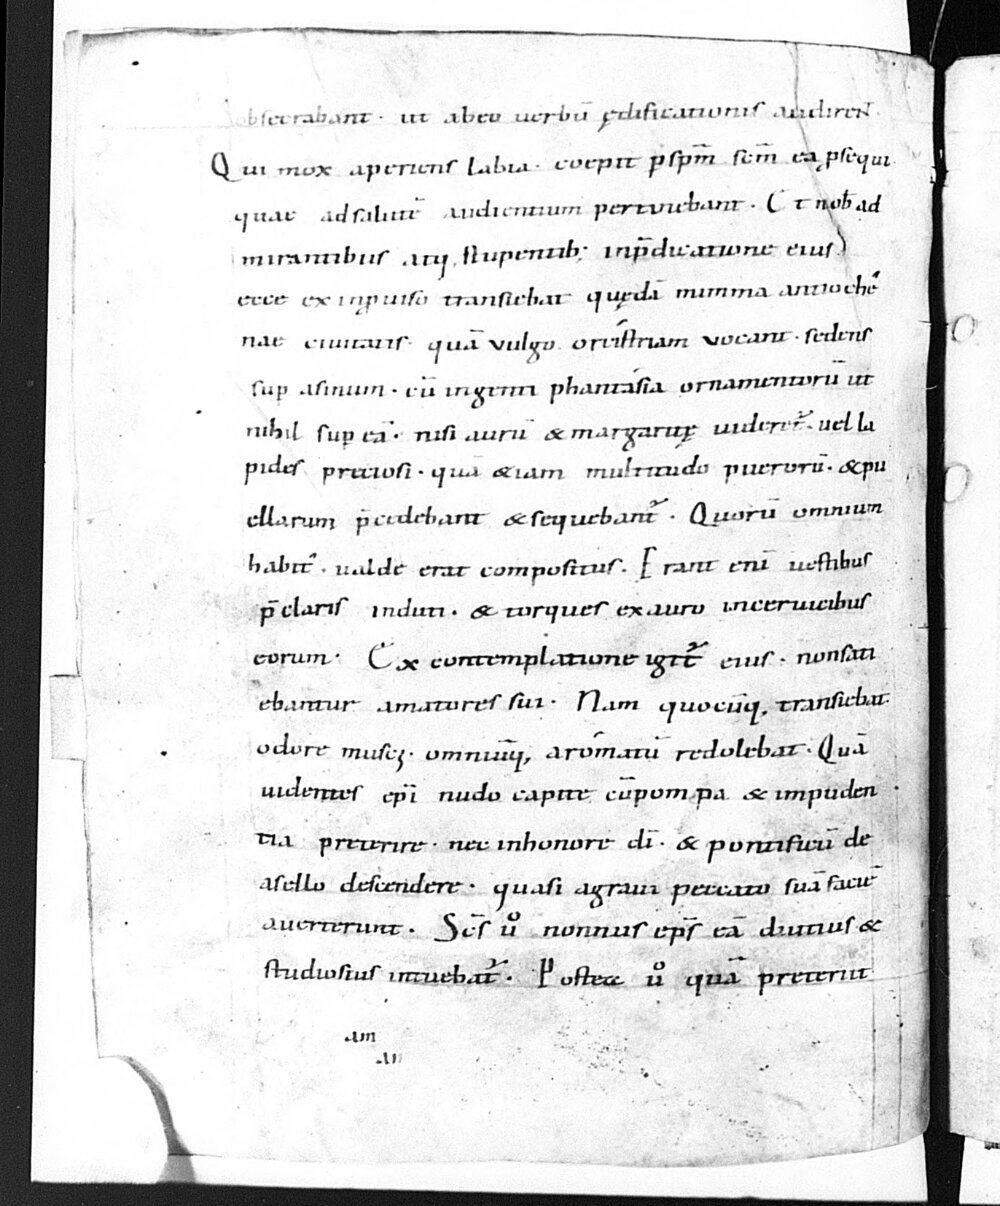 obsecrabant · ut abeo uerbū ędificationis audirent ·
Qui mox aperiens labia · coepit p̄ spm̄ scm̄ ea ꝓsequi
quae adsalutē audientium pertinebant · Et nob̄ ad
mirantibus atq; stupentib; inp̄dicatione eius
ecce eximꝓuiso transiebat quędā mimma antioche
nae ciuitatis · quā vulgo orcistriam vocant · sedens
suꝑ asinum · cū ingenti phantasia ornamentorū ut
nihil suꝑ eā · nisi aurū & margaritę uideret᷑ · uel la
pides preciosi · quā &iam multitudo puerorū · & pu
ellarum p̄cedebant & sequebant᷑ · Quorū omnium
habit᷒ · ualde erat compositus · Erant enī uestibus
p̄claris induti · & torques exauro inceruicibus
eorum · Ex contemplatione igit᷑ eius · nonsati
ebantur amatores sui · Nam quocūq; transiebat
odore musci · omniūq; aromatū redolebat · Quā
uidentes ep̄i nudo capite cūpompa & impuden
tia preterire · nec inhonore dī · & pontificū de
asello descendere · quasi agraui peccato suā faciē
auerterunt · Sc̄s ů nonnus ep̄s eā diutius &
studiosius intuebat᷑ · Postea ů quā preteriit
am
an